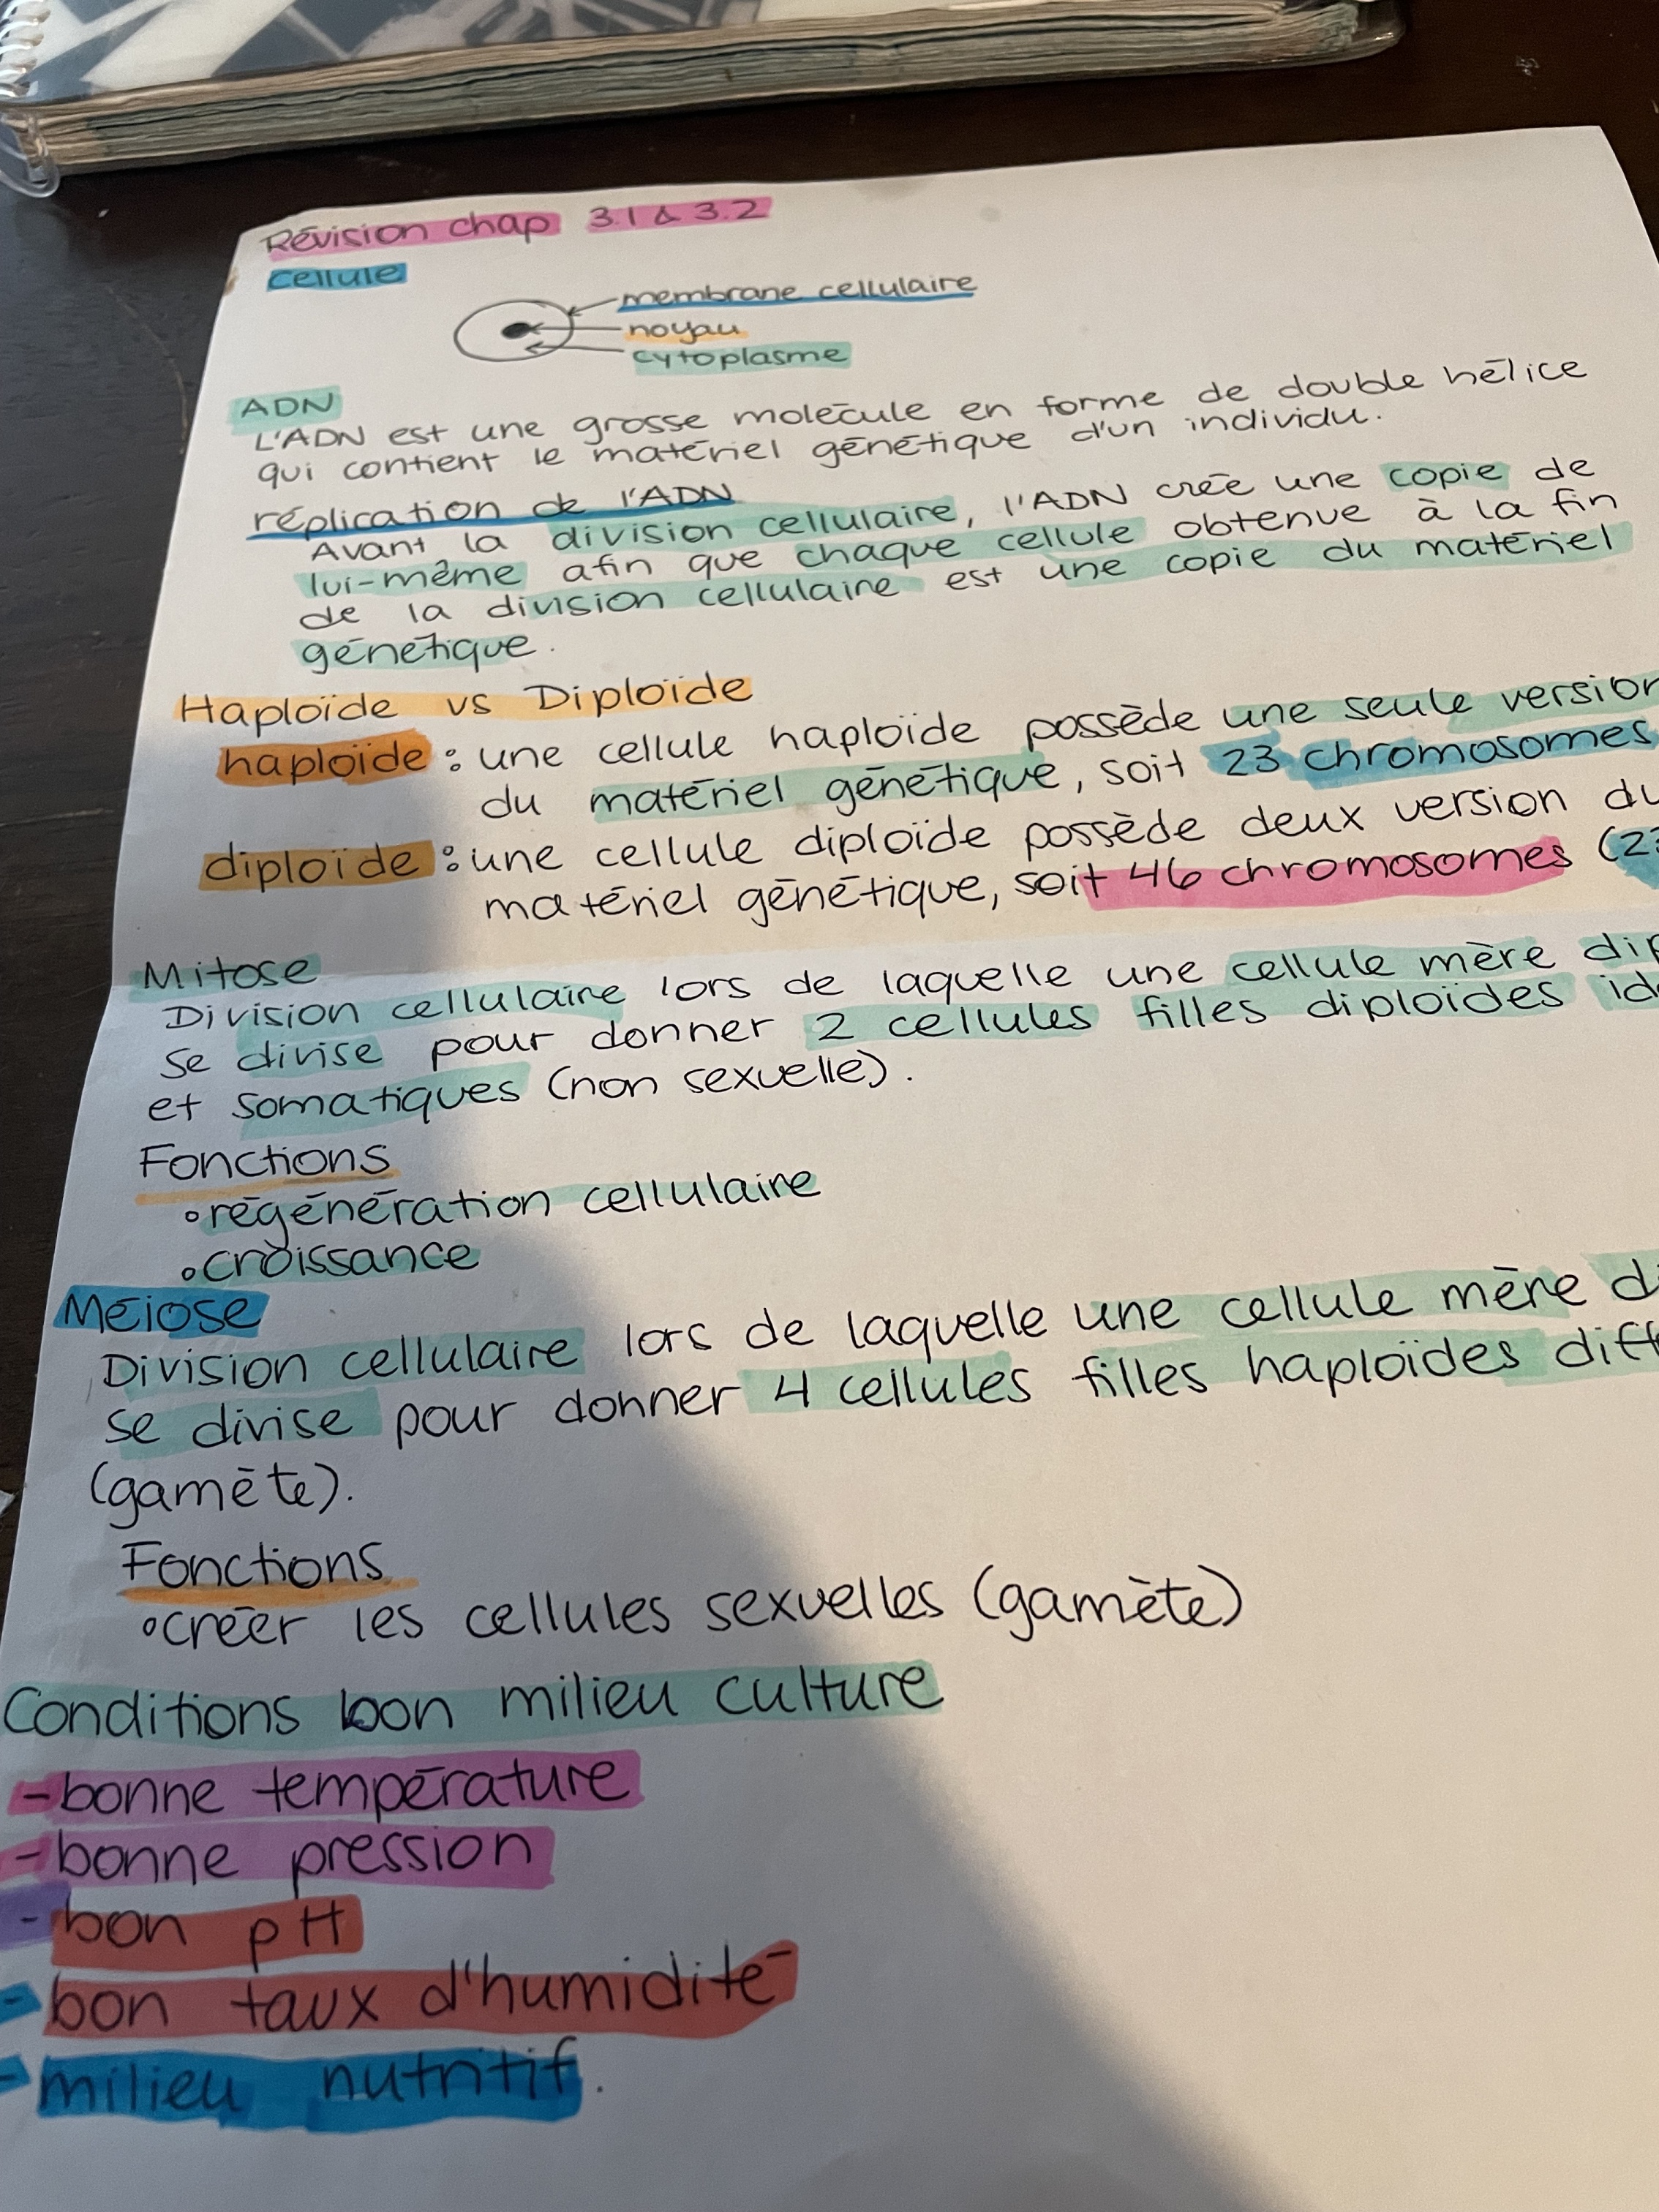 Révision chap 3.1 & 3.2
cellule
membrane cellulaire
noyau
cytoplasme
ADN
L'ADN est une grosse molécule en forme de double hélice
qui contient le matériel génétique d'un individu.
réplication de l'ADN
Avant la division cellulaire, l'ADN crée une copie de
lui-même afin que chaque cellule obtenue à la fin
de la division cellulaire est une copie du matériel
génétique.
Haploïde vs Diploïde
haploïde : une cellule haploïde possède une seule version
du matériel génétique, soit 23 chromosomes
diploïde : une cellule diploïde possède deux version du
matériel génétique, soit 46 chromosomes
Mitose
Division cellulaire lors de laquelle une cellule mère
se divise pour donner 2 cellules filles diploïdes
et somatiques (non sexuelle).
Fonctions
• régénération cellulaire
• croissance
Méiose
Division cellulaire lors de laquelle une cellule mère
se divise pour donner 4 cellules filles haploïdes
(gamète).
Fonctions
• créer les cellules sexuelles (gamète)
Conditions bon milieu culture
- bonne température
- bonne pression
- bon pH
- bon taux d'humidité
- milieu nutritif.